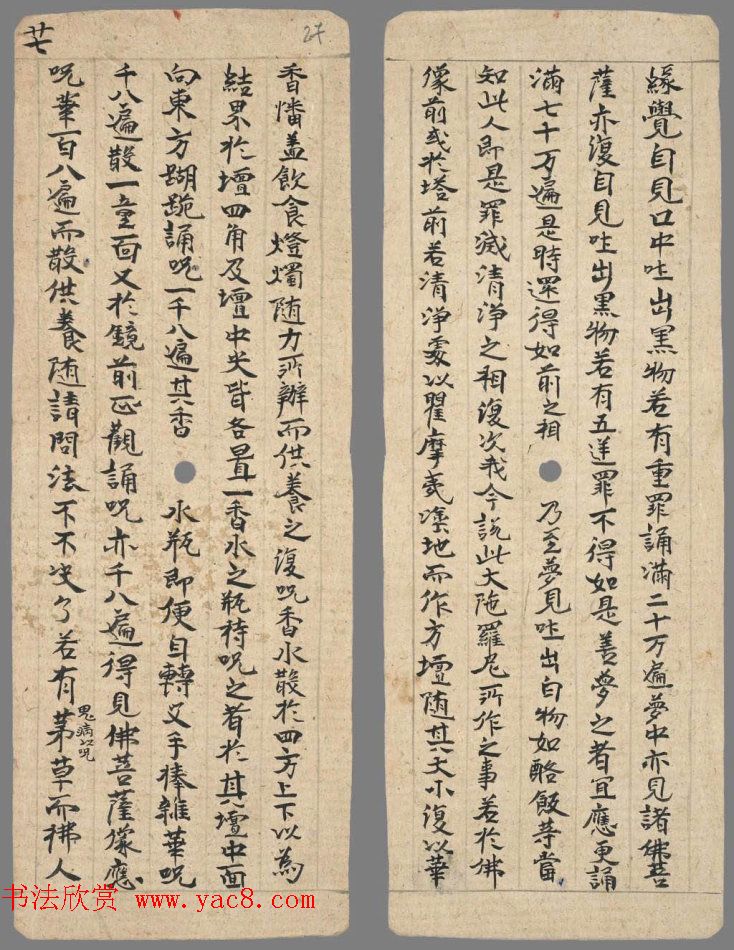 緣覺自見口中吐出黑物若有重罪誦滿二十万遍夢中亦見諸佛菩
薩亦復自見吐出黑物若有五逆罪不得如是善夢之者宜應更誦
滿七千万遍是時還得如前之相 乃至夢見吐出白物如酪飯等當
知此人即是罪滅清淨之相復次我今說此大陁羅尼所作之事若於佛
像前或於塔前若清淨處以瞿摩夷塗地而作方壇随其大小復以華
27
香幡盖飲食燈燭随力所辦而供養之復呪香水散於四方上下以為
結界於壇四角及壇中央皆各置一香水之瓶持呪之者於其壇中面
向東方䠒跪誦呪一千八遍其香 水瓶即便自轉叉手捧雜華呪
千八遍散一童面又於鏡前正觀誦呪亦千八遍得見佛菩薩像應
呪華一百八遍而散供養随請問法不不决了若有鬼病以呪茅草而拂人
廿七
书法欣赏 www.yac8.com